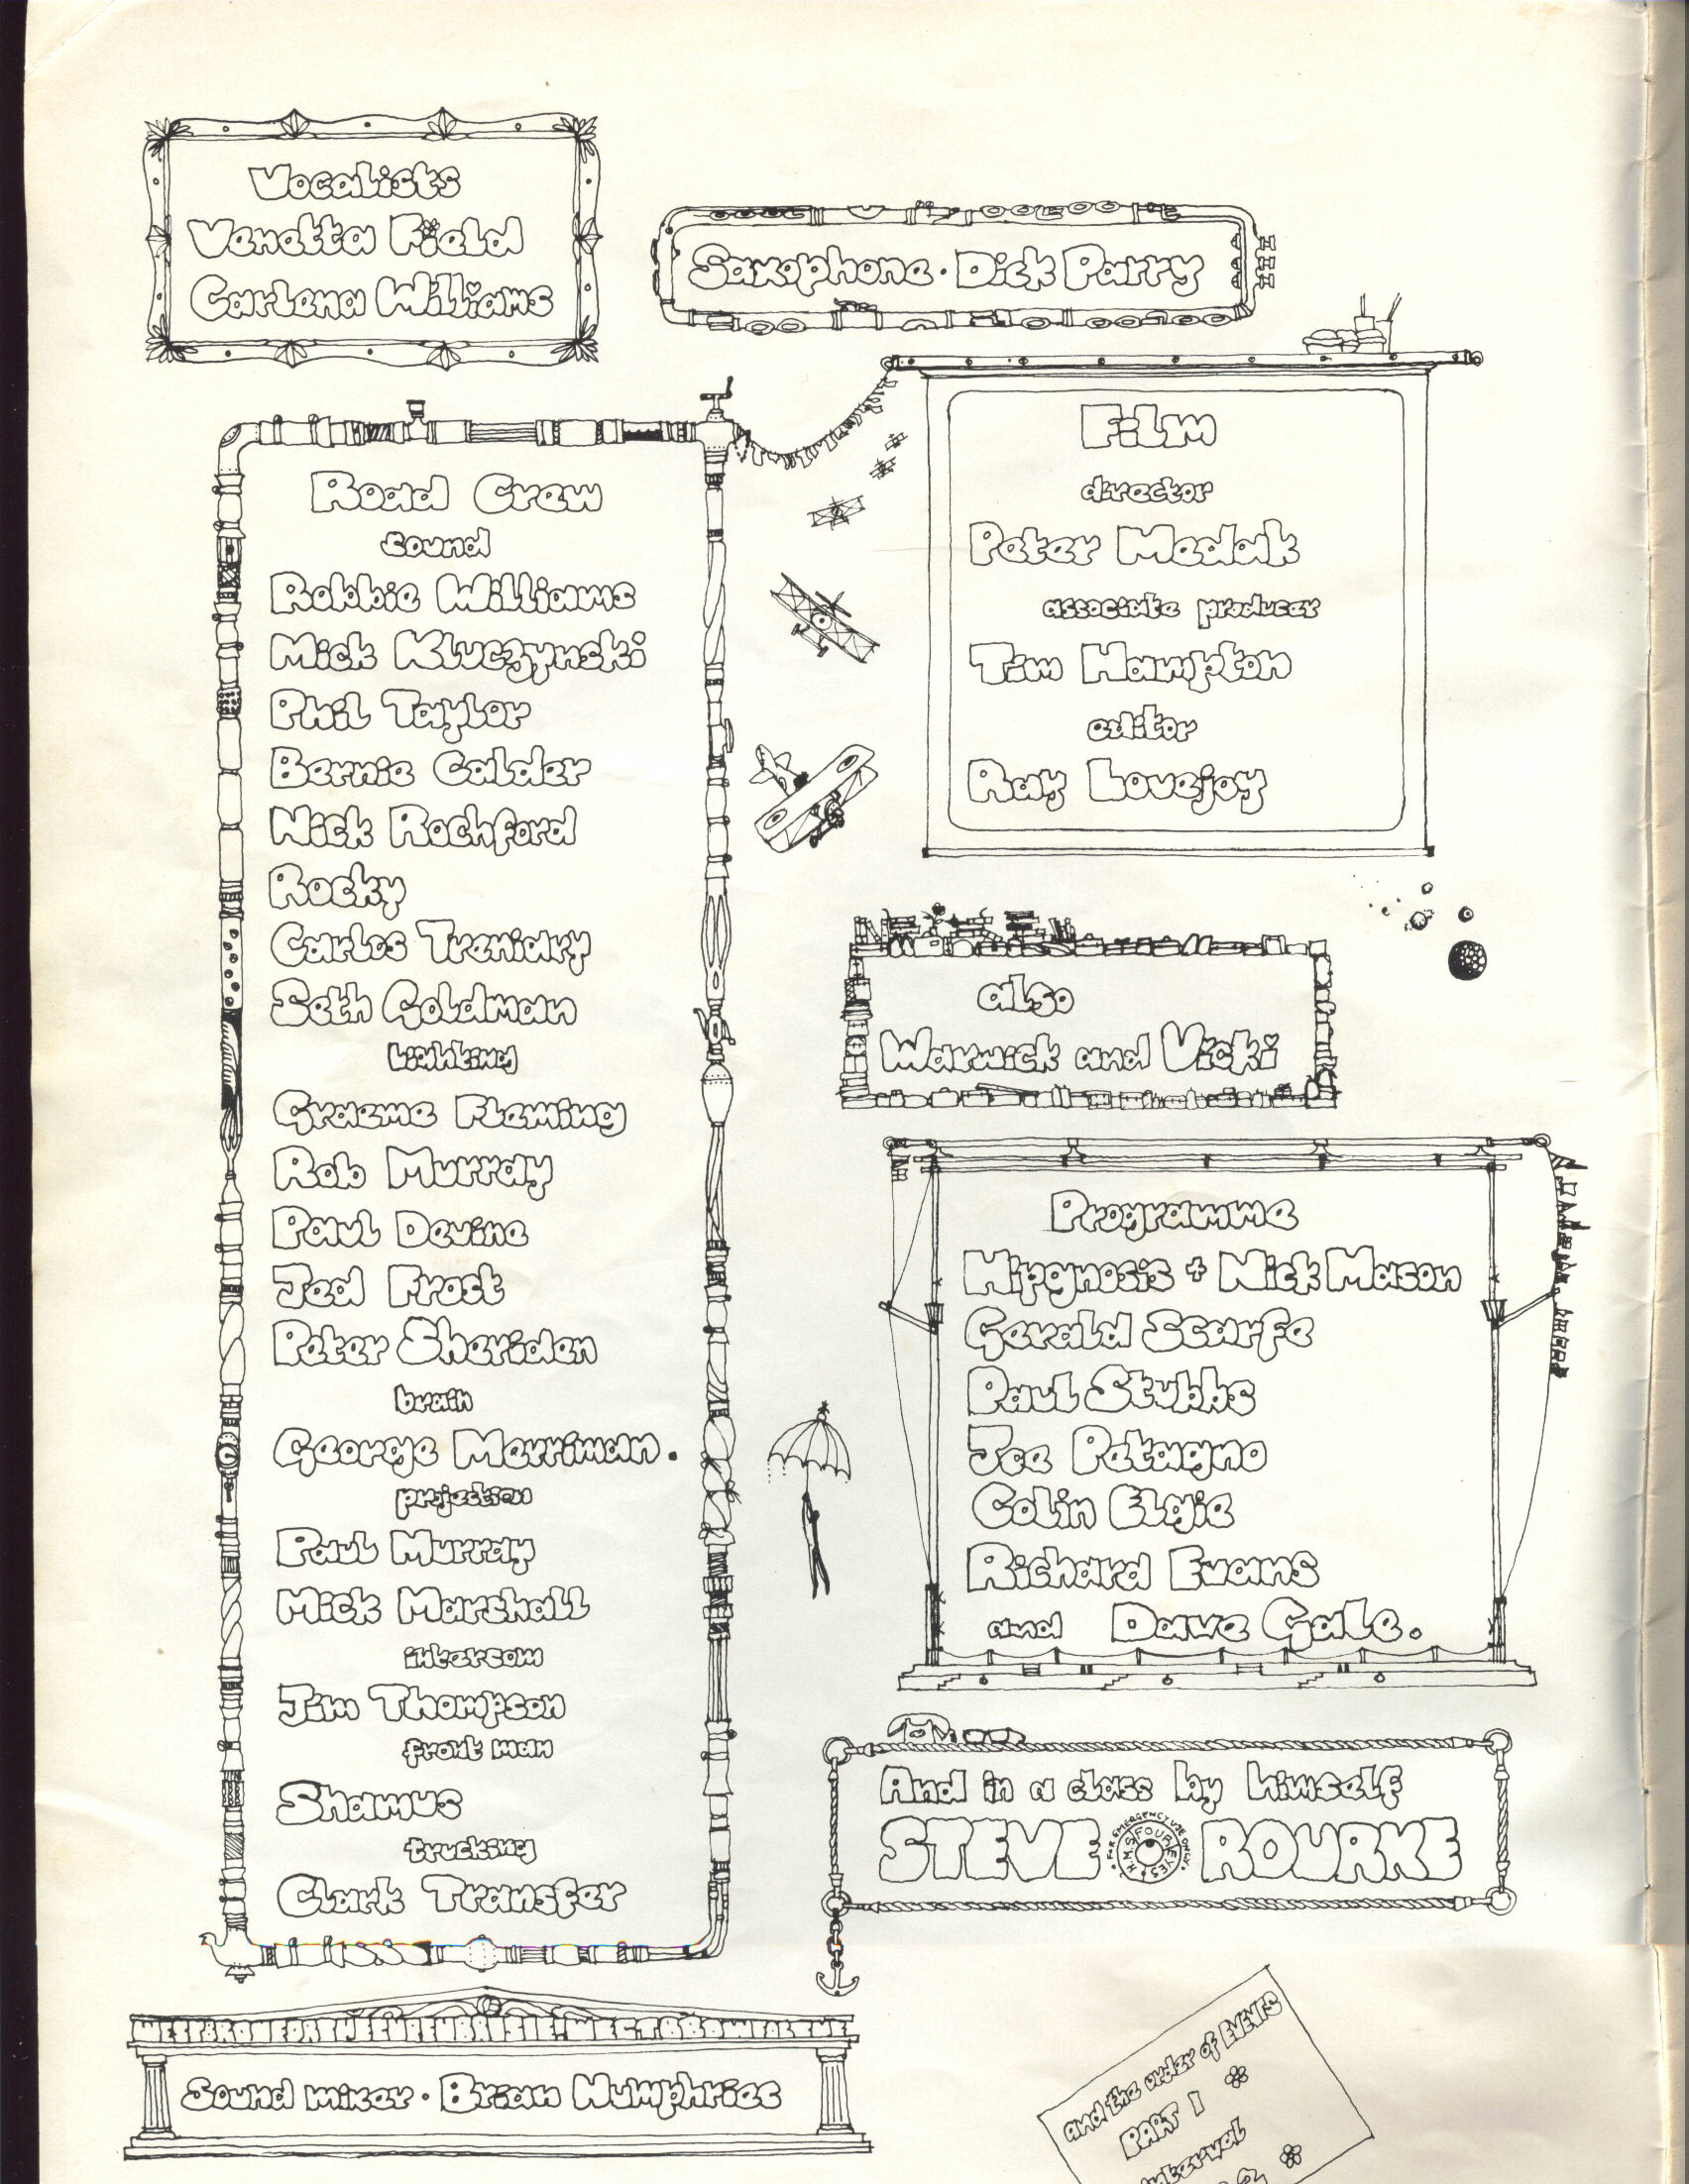 Vocalists
Venetta Field
Carlena Williams
Saxophone · Dick Parry
Road Crew
sound
Robbie Williams
Mick Kluczynski
Phil Taylor
Bernie Calder
Nick Rochford
Rocky
Carlos Treniary
Seth Goldman
Lighting
Graeme Fleming
Rob Murray
Paul Devine
Jed Frost
Peter Sheriden
brain
George Merriman.
projection
Paul Murray
Mick Marshall
intercom
Jim Thompson
front man
Shamus
trucking
Clark Transfer
Film
director
Peter Medak
associate producer
Tim Hampton
editor
Ray Lovejoy
also
Warwick and Vicki
Programme
Hipgnosis + Nick Mason
Gerald Scarfe
Paul Stubbs
Joe Petagno
Colin Elgie
Richard Evans
and Dave Gale.
And in a class by himself
STEVE ROURKE
FOR EMERGENCY USE ONLY
H.M.S FOUR EYES
Sound mixer · Brian Humphries
and the order of EVENTS
PART 1
interval
2